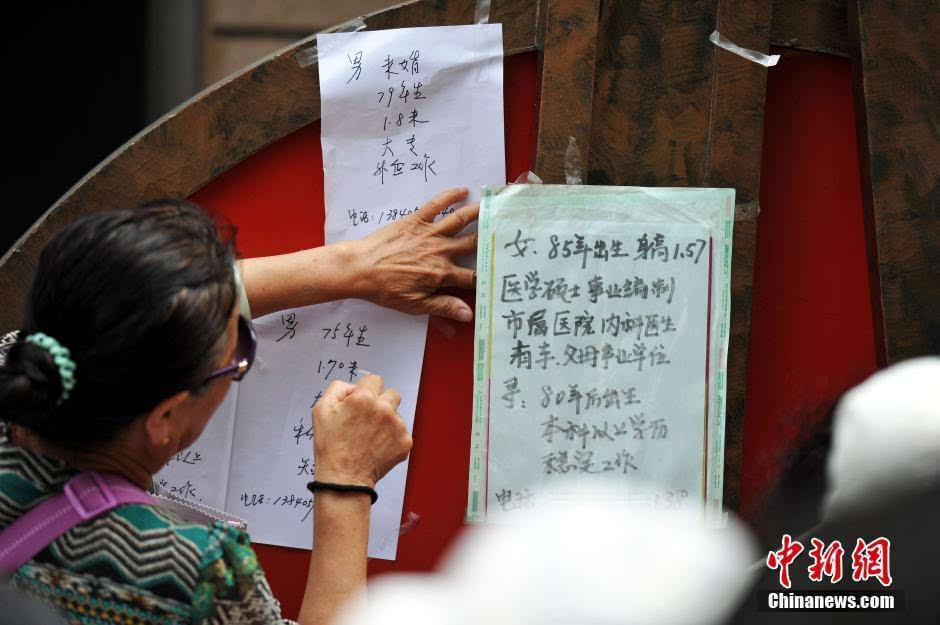 男 未婚
79年生
1.8米
大专
外企工作
电话:138405
男 75年生
1.70米
电话:138405
女.85年出生 身高1.57
医学硕士 事业编制
市属医院 内科医生
有车.父母事业单位
寻:80年后出生
本科以上学历
稳定工作
电话
138
中新网
Chinanews.com